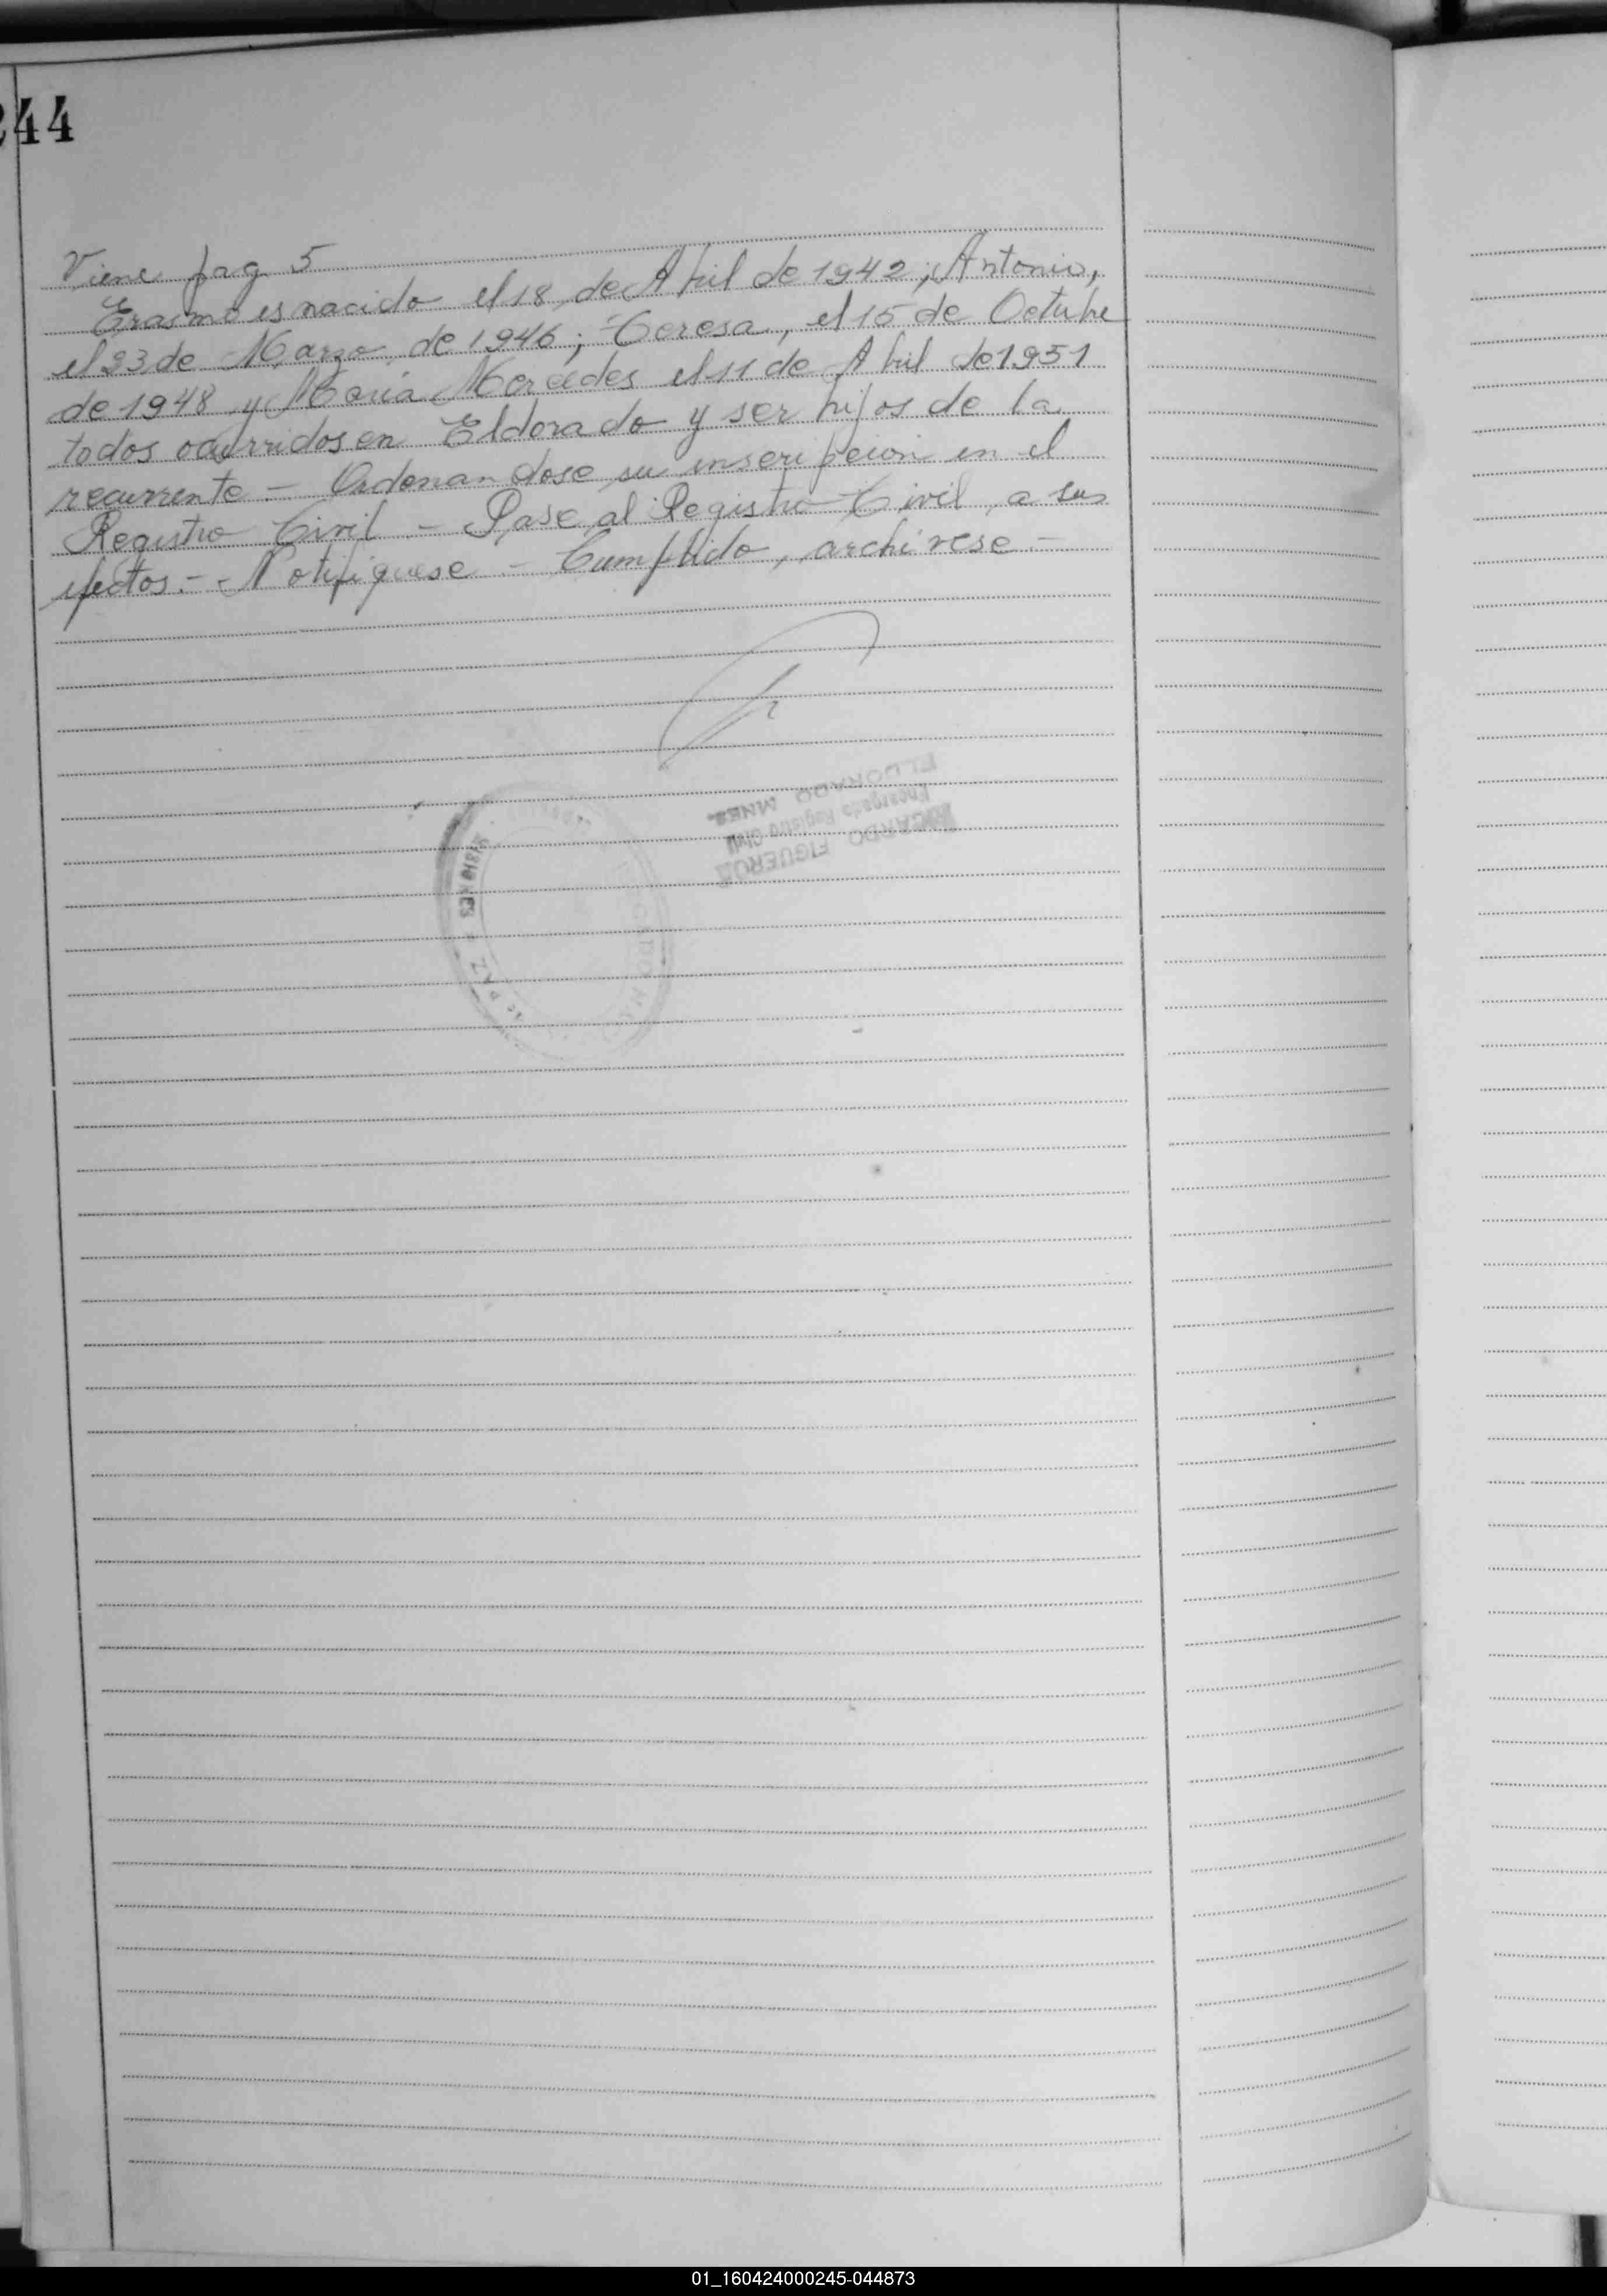 244
Viene pag 5
Erasmo es nacido el 18 de Abril de 1942; Antonio,
el 23 de Marzo de 1946; Teresa, el 15 de Octubre
de 1948 y María Mercedes el 11 de Abril de 1951
todos ocurridos en Eldorado y ser hijos de la
recurrente - Ordenandose su inscripcion en el
Registro Civil - Pase al Registro Civil, a sus
efectos. - Notifiquese - Cumplido, archivese -
RICARDO FIGUEROA
Encargado Registro Civil
ELDORADO MNES.
MISIONES
01_160424000245-044873